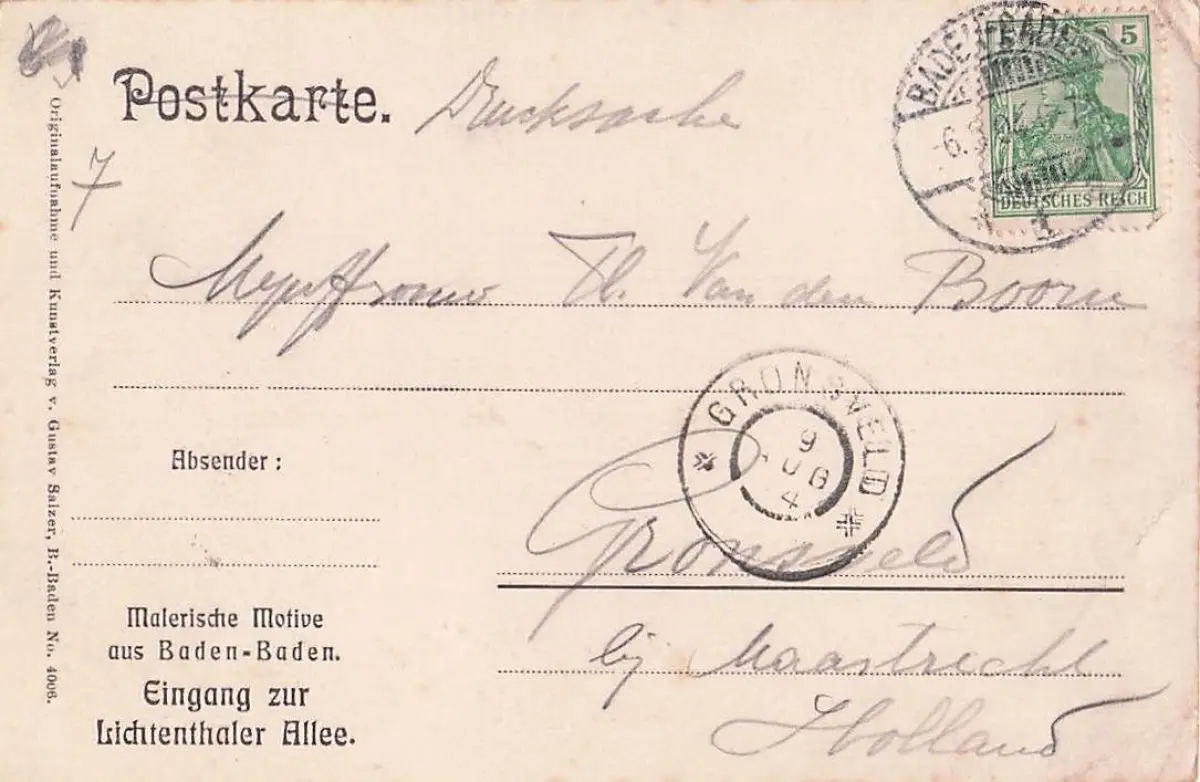 Postkarte. Drucksache
5
DEUTSCHES REICH
BADEN-BADEN
1
7
Mejuffrouw Th. Van den Boorn
GRONSVELD
9
AUG
4
Gronsveld
bij Maastricht
Holland
Absender:
Malerische Motive
aus Baden-Baden.
Eingang zur
Lichtenthaler Allee.
Originalaufnahme und Kunstverlag v. Gustav Salzer, B.-Baden No. 4006.